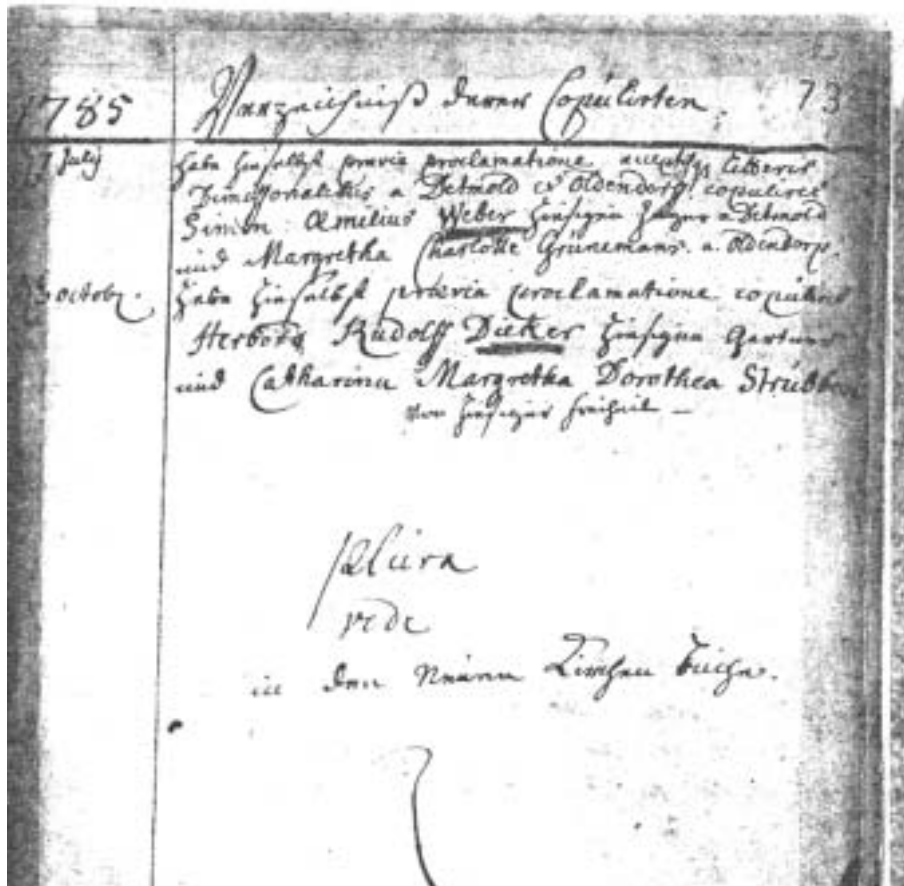 73
1785 Verzeichniß derer Copulirten.
July habe hieselbst prævia proclamatione acceptis litteris
Dimissorialibus a Detmold et Oldendorp copuliret
Simon Æmilius Weber hiesigen a Detmold
und Margretha Charlotte Grünemans a Oldendorp.
octobr. habe hieselbst prævia proclamatione copuliret
Herbord Rudolff Dieker hiesigen Gärtner
und Catharina Margretha Dorothea Strübben
von hiesiger Freiheit —
plura
vide
in den Neuen Kirchen Buche.